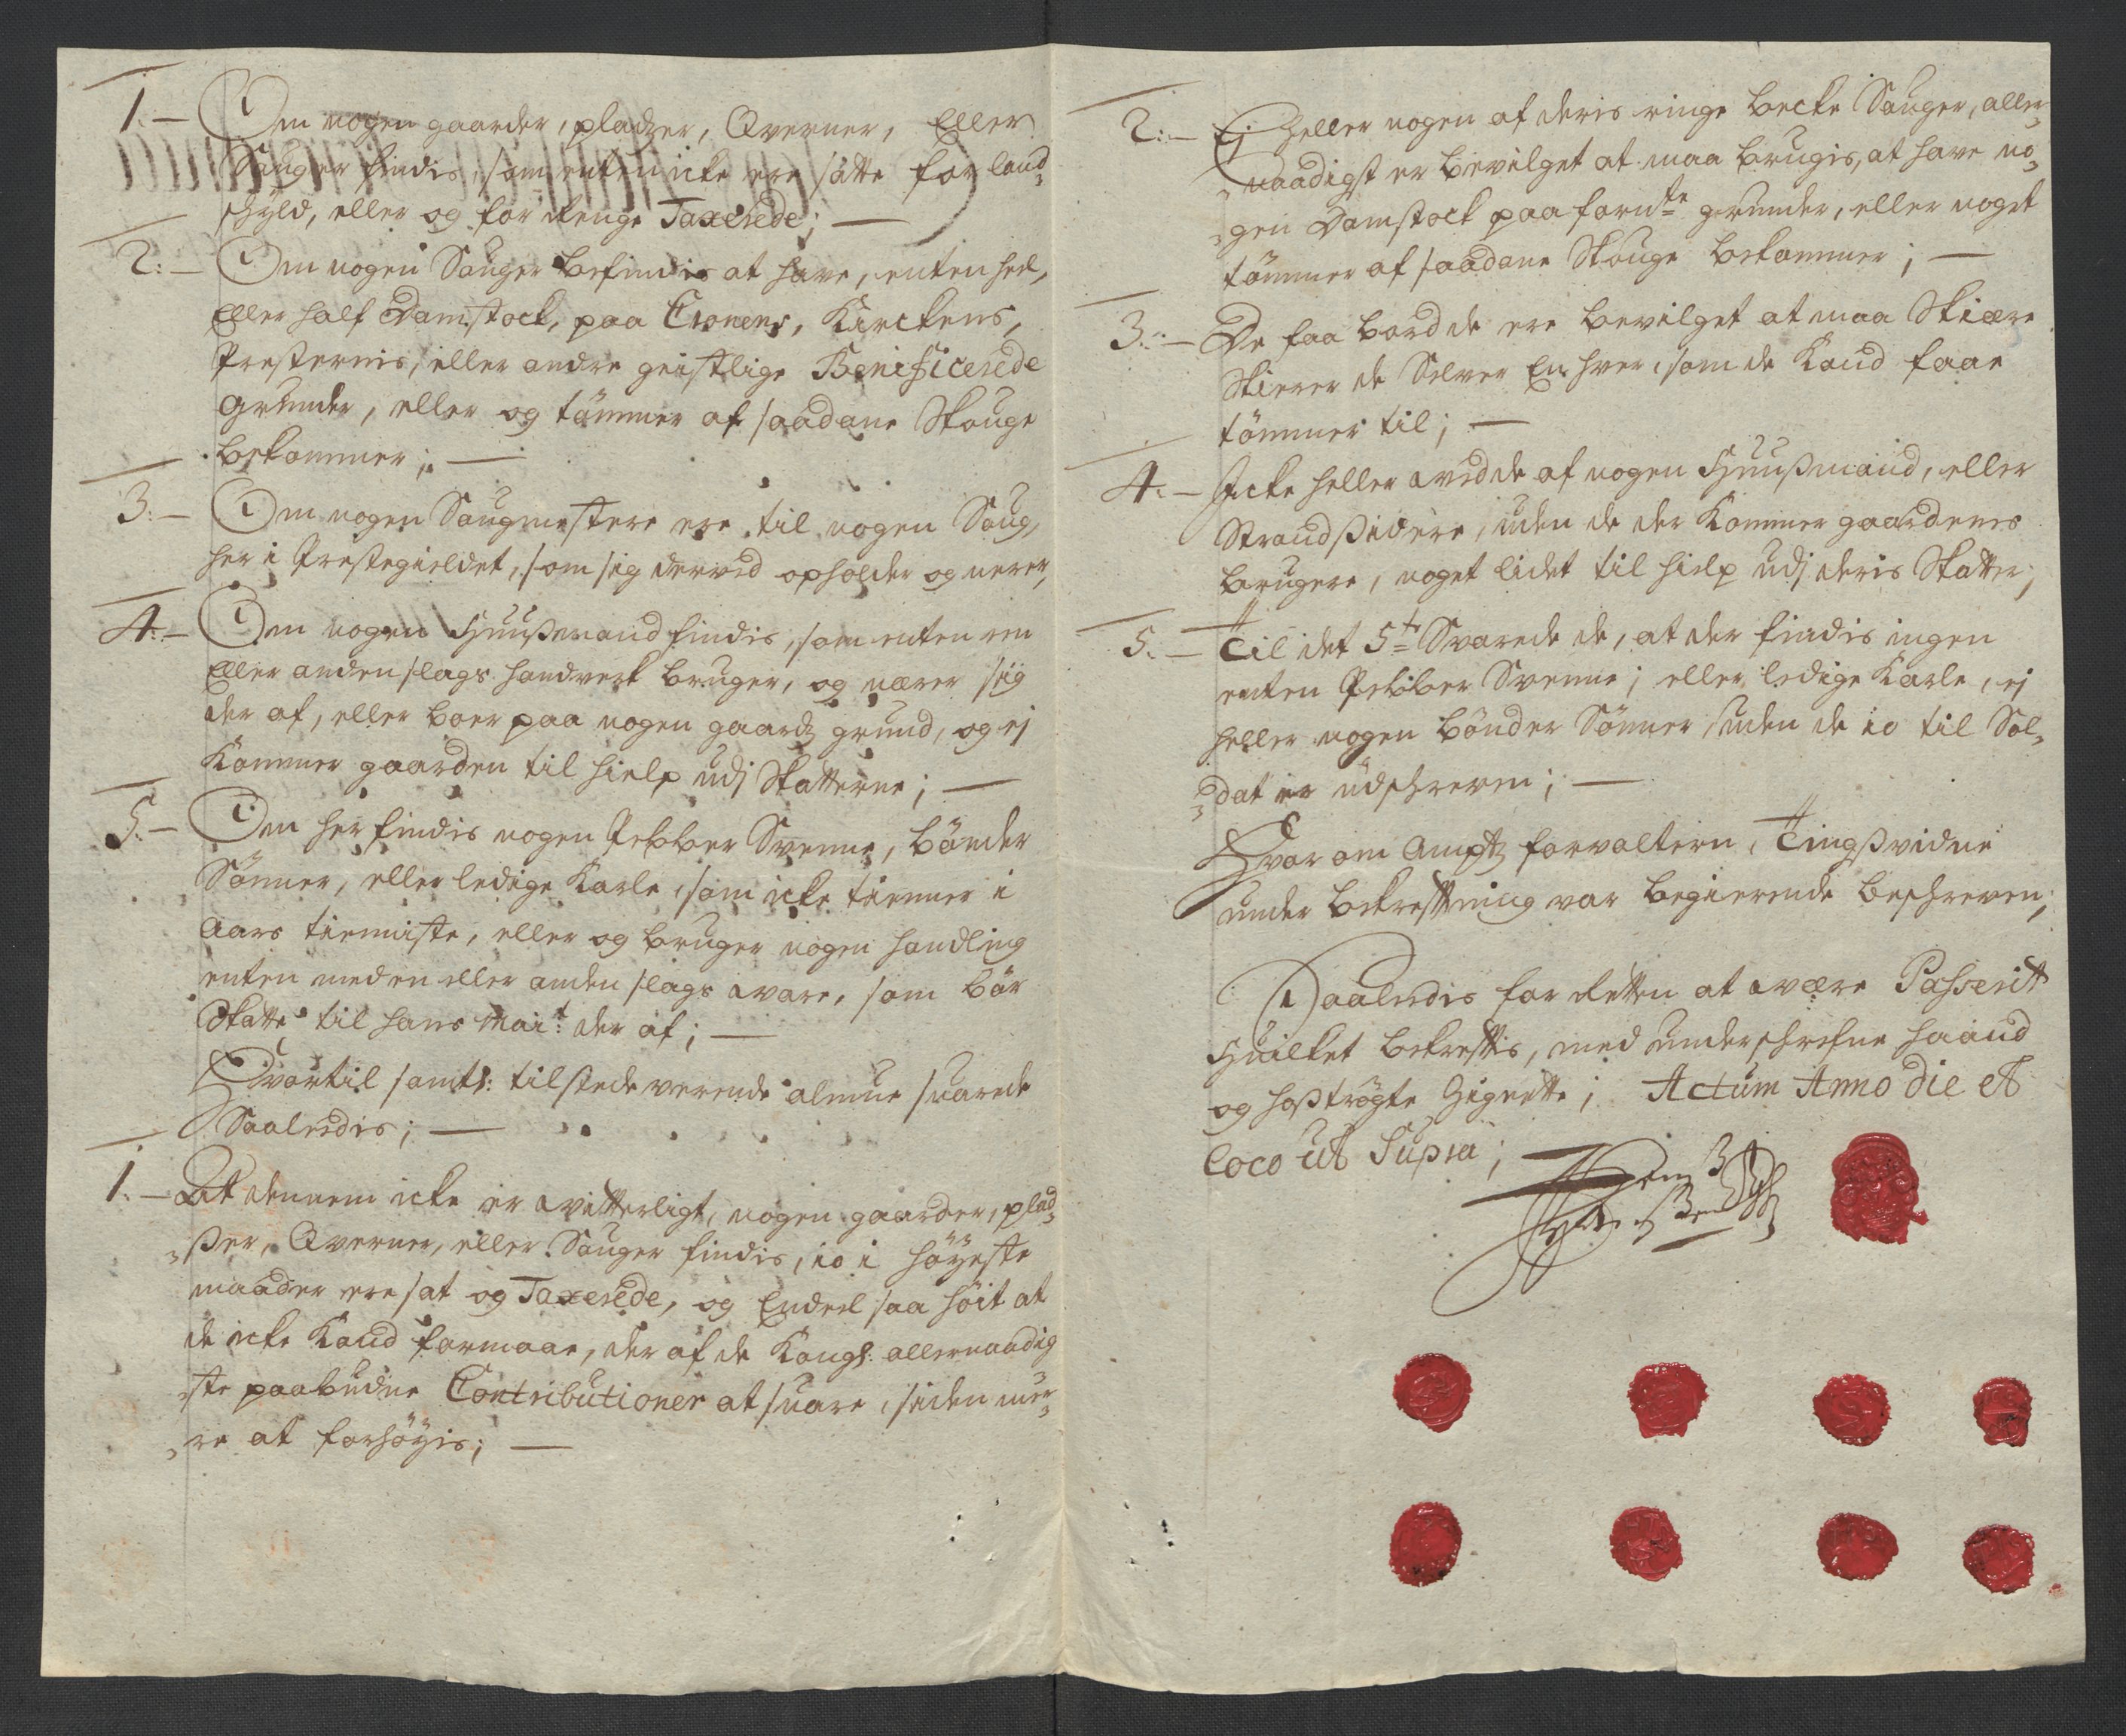 1. Om nogen gaarder, pladzer, Qverner, Eller
Sauger findis, som enten icke ere satte for land-
schyld, eller og for ringe Taxerede;
2. Om nogen Sauger befindis at have, enten heel,
Eller half Damstock, paa Cronens, Kirckens,
Presternis, eller andre geistlige Benificerede
grunder, eller og tømmer af saadane Skouge
bekommer;
3. Om nogen Saugmestere ere til nogen Saug,
her i Prestegieldet, som sig derved opholder og nerer,
4. Om nogen Huußmand findis, som enten een
Eller anden slags handverk bruger, og nærer sig
der af, eller boer paa nogen gaards grund, og ej
Kommer gaarden til hielp udj Skatterne;
5. Om her findis nogen Pebber Svenne, bønder
Sønner, eller ledige Karle, som icke tienner i
Aars tienniste, eller og bruger nogen handling
enten med en eller anden slags vare, som bør
Skatte til hans Mait: der af;
Hvortil samtl: tilstedeverende almue svarede
Saaledis;
1. At dennem icke er vitterligt, nogen gaarder, plad-
-ßer, Qverner, eller Sauger findis, io i høyeste
maader ere sat og Taxerede, og Endeel saa høit at
de icke Kand formaae, der af de Kongl: allernaadig
-ste paabudne Contributioner at svare, siden mee-
-re at forhøyis;
2. Ej heller nogen af deris ringe becke Sauger, aller-
-naadigst er bevilget at maa brugis, at have no-
-gen Damstock paa fornte grunder, eller noget
tømmer af saadane Skouge bekommer;
3. De faa bord de ere bevilget at maa Skiære
Skierer de Selver Enhver, som de Kand faae
tømmer til;
4. Icke heller vidde af nogen Huußmænd, eller
Strandßidere, uden de der Kommer gaardenes
brugere, noget lidet til hielp udj deris Skatter;
5. Til det 5te Svarede de, at der findis ingen
enten Pebber Svenne, eller ledige Karle, ej
heller nogen bønder Sønner, uden de io til Sol-
-dat er udschreven;
Hvor om Amptz forvaltern, Tingßvidne
under bekreftning var begierende beschreven;
Saaledis for Retten at være Passerit
Huilket bekreftis, med underschrefne haand
og hoßtrøgte Zignette; Actum Anno Die et
Loco ut Supra;